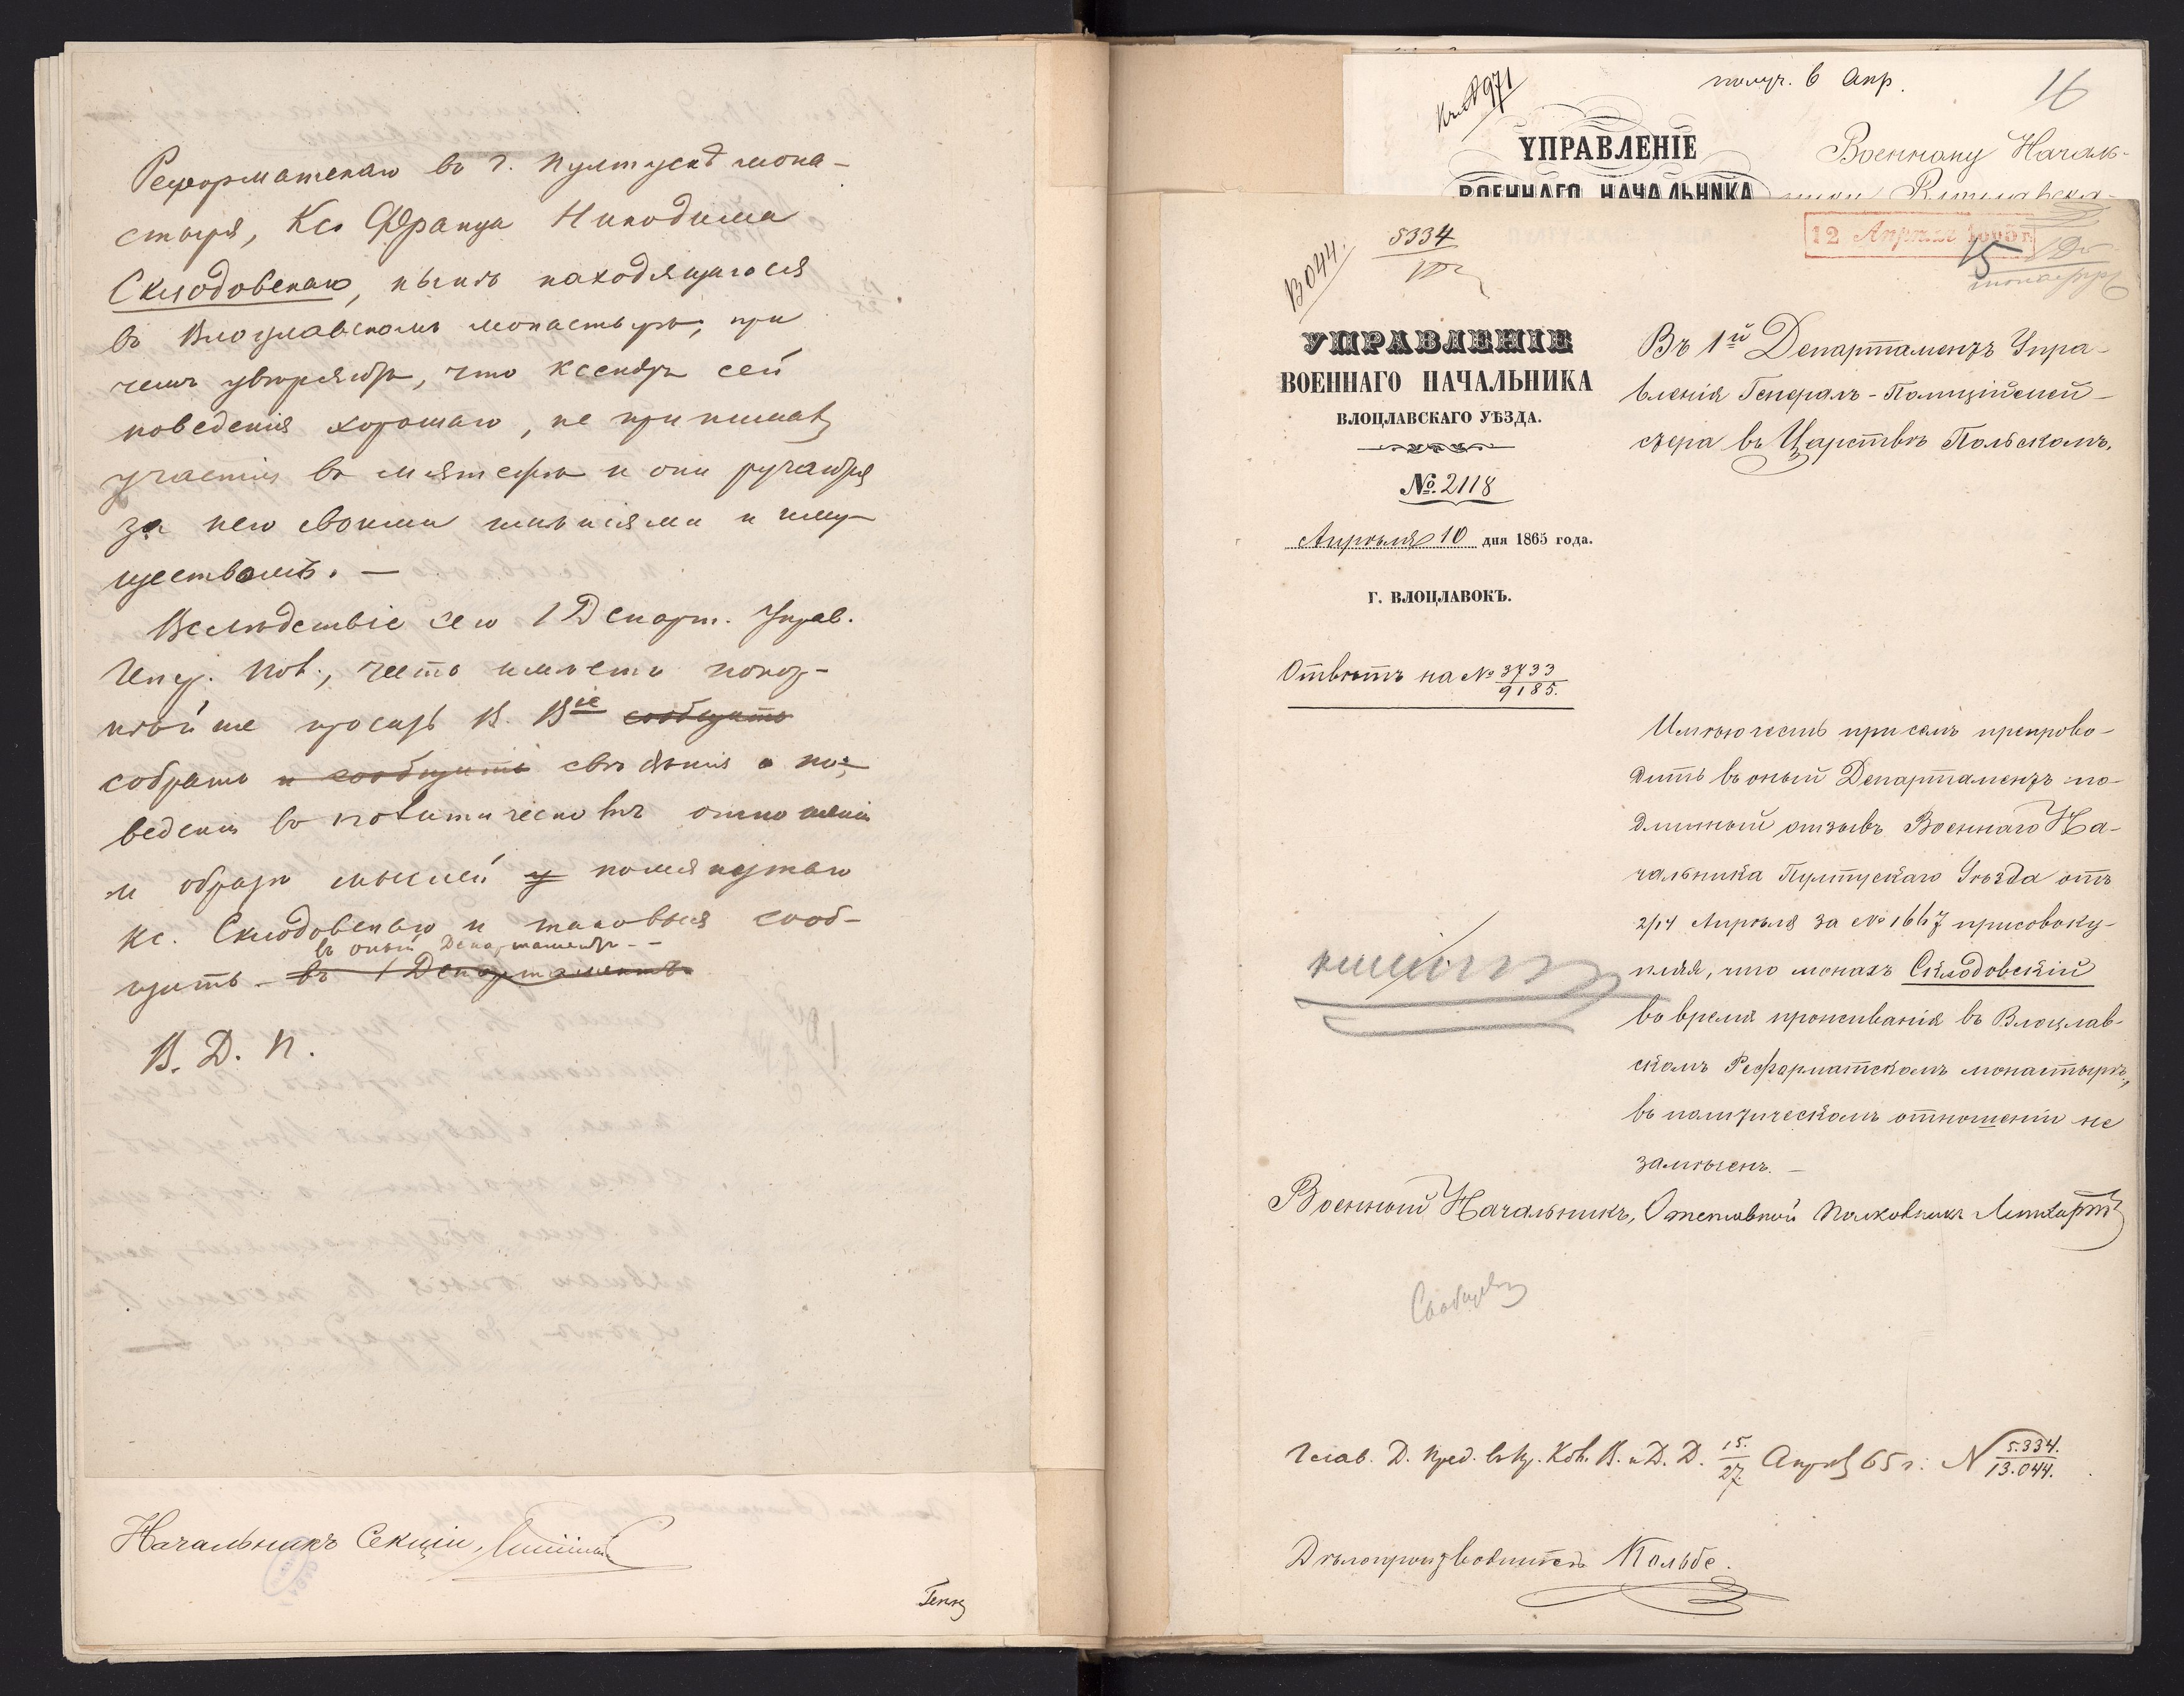 Реформатскаго въ г. Пултускѣ мона-
стыря, Кс. Франца Никодима
Склодовскаго, нынѣ находящагося
въ Влоцлавскомъ монастырѣ, при
чемъ увѣряютъ, что ксендзъ сей
поведенія хорошаго, не принималъ
участія въ мятежѣ и они ручаются
за него своими имѣніями и иму-
ществомъ. —
Вслѣдствіе сего 1 Департ. Управ.
Ген. Пол., честь имѣетъ покор-
нѣйше просить В. Вie сообщить
собрать и сообщить свѣдѣнія о по-
веденіи въ политическомъ отношеніи
и образѣ мыслей у помянутаго
кс. Склодовскаго и таковыя сооб-
въ оный Департаментъ —
щить — въ 1 Департаментъ
В. Д. П.
Начальникъ Секціи,
получ. 6 Апр.
16
971
УПРАВЛЕНІЕ
ВОЕННАГО НАЧАЛЬНИКА
Военному Началь-
12 Апрѣля 1865 г.
15
5334
13044.
УПРАВЛЕНІЕ
ВОЕННАГО НАЧАЛЬНИКА
ВЛОЦЛАВСКАГО УѢЗДА.
№ 2118
Апрѣля 10 дня 1865 года.
Г. ВЛОЦЛАВОКЪ.
Отвѣтъ на № 3733
9185.
Въ 1й Департаментъ Упра-
вленія Генералъ-Полиціймей-
стера въ Царствѣ Польскомъ.
Имѣю честь при семъ препрово-
дить въ оный Департаментъ по-
длинный отзывъ Военнаго На-
чальника Пултускаго Уѣзда отъ
2/14 Апрѣля за № 1667 присовоку-
пляя, что монахъ Склодовскій
во время проживанія въ Влоцлав-
скомъ Реформатскомъ монастырѣ,
въ политическомъ отношеніи не
замѣченъ. —
Военный Начальникъ, Отставной Полковникъ
Д. Пред. К. В. и Д. Д. 15/27 Апрѣ 65 г. N 5.334.
13.044.
Дѣлопроизводитель Кольбе.